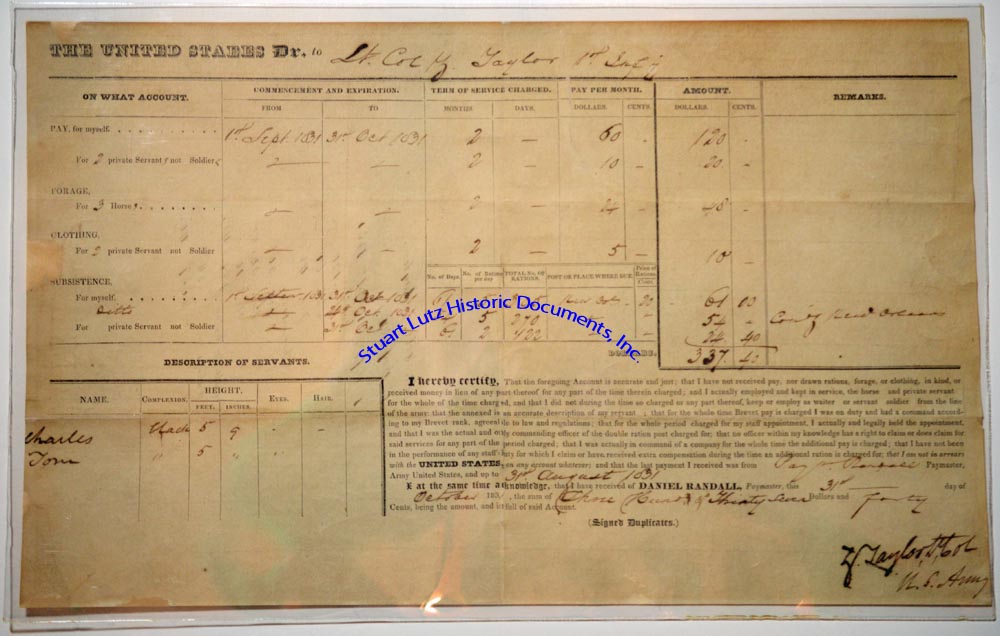 THE UNITED STATES Dr. to Lt. Col Z. Taylor 1st Inf'y
ON WHAT ACCOUNT. COMMENCEMENT AND EXPIRATION. TERM OF SERVICE CHARGED. PAY PER MONTH. AMOUNT. REMARKS.
FROM TO MONTHS. DAYS. DOLLARS. CENTS. DOLLARS. CENTS.
PAY, for myself. 1st Sept. 1831 31st Oct 1831 2 — 60 - 120 -
For 2 private Servants not Soldiers — — 2 — 10 - 20 -
FORAGE,
For 3 Horses — — 2 — 24 - 48 -
CLOTHING,
For 2 private Servant not Soldier — — 2 — 5 - 10 -
SUBSISTENCE, No. of Days. No. of Rations per day TOTAL No. OF RATIONS. POST OR PLACE WHERE DUE. Price of Rations. Cents.
For myself. 1831 31st Oct 1831 20 61 00
ditto Oct. 1831 5 270 54 - New Orleans
For private Servant not Soldier — 31st Oct 61 2 24 40
DOLLARS. 337. 40
DESCRIPTION OF SERVANTS.
NAME. COMPLEXION. HEIGHT. EYES. HAIR.
FEET. INCHES.
Charles black 5 9
Tom " 5
I hereby certify, That the foregoing Account is accurate and just; that I have not received pay, nor drawn rations, forage, or clothing, in kind, or
received money in lieu of any part thereof for any part of the time therein charged; and I actually employed and kept in service, the horse and private servant
for the whole of the time charged, and that I did not during the time so charged or any part thereof, keep or employ as waiter or servant soldier from the line
of the army: that the annexed is an accurate description of my servant , that for the whole time Brevet pay is charged I was on duty and had a command accord-
ing to my Brevet rank, agreeable to law and regulations; that for the whole period charged for my staff appointment, I actually and legally held the appointment,
and that I was the actual and only commanding officer of the double ration post charged for; that no officer within my knowledge has a right to claim or does claim for
said services for any part of the period charged; that I was actually in command of a company for the whole time the additional pay is charged; that I have not been
in the performance of any staff duty for which I claim or have received extra compensation during the time an additional ration is charged for; that I am not in arrears
with the UNITED STATES, on any account whatever; and that the last payment I received was from Paymr. Randall Paymaster,
Army United States, and up to 31st August 1831
I at the same time acknowledge, that I have received of DANIEL RANDALL, Paymaster, this 31st day of
October 183 , the sum of Three Hundred & Thirty Seven Dollars and forty
Cents, being the amount, and in full of said Account.
(Signed Duplicates.)
Z. Taylor, Lt. Col
U. S. Army
Stuart Lutz Historic Documents, Inc.